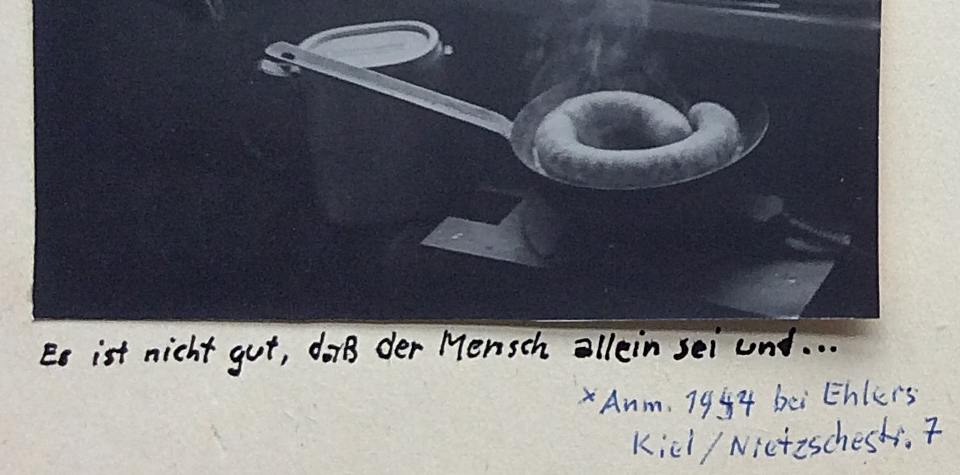 Es ist nicht gut, daß der Mensch allein sei und...
*Anm. bei Ehlers
Kiel/Nietzschestr. 7